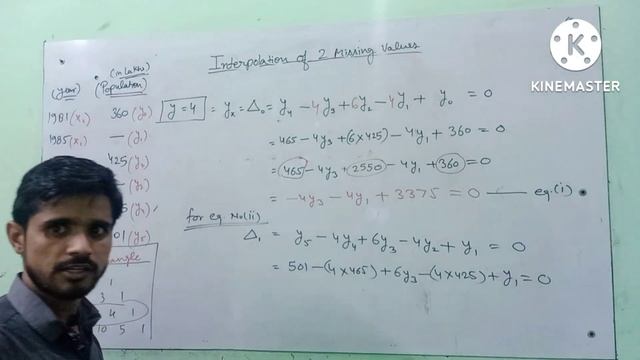 Interpolation of 2 Missing Values
KINEMASTER
(in Lakhs)
(Year) (Population)
1981 (x₀) 360 (y₀)
1985 (x₁) — (y₁)
425 (y₂)
— (y₃)
5 (y₄)
01 (y₅)
angle
1
3 1
4 1
10 5 1
y = 4 = yₓ = Δ₀ = y₄ - 4y₃ + 6y₂ - 4y₁ + y₀ = 0
= 465 - 4y₃ + (6×425) - 4y₁ + 360 = 0
= 465 - 4y₃ + 2550 - 4y₁ + 360 = 0
= -4y₃ - 4y₁ + 3375 = 0 — eq.(i)
for eq No(ii)
Δ₁ = y₅ - 4y₄ + 6y₃ - 4y₂ + y₁ = 0
= 501 - (4×465) + 6y₃ - (4×425) + y₁ = 0